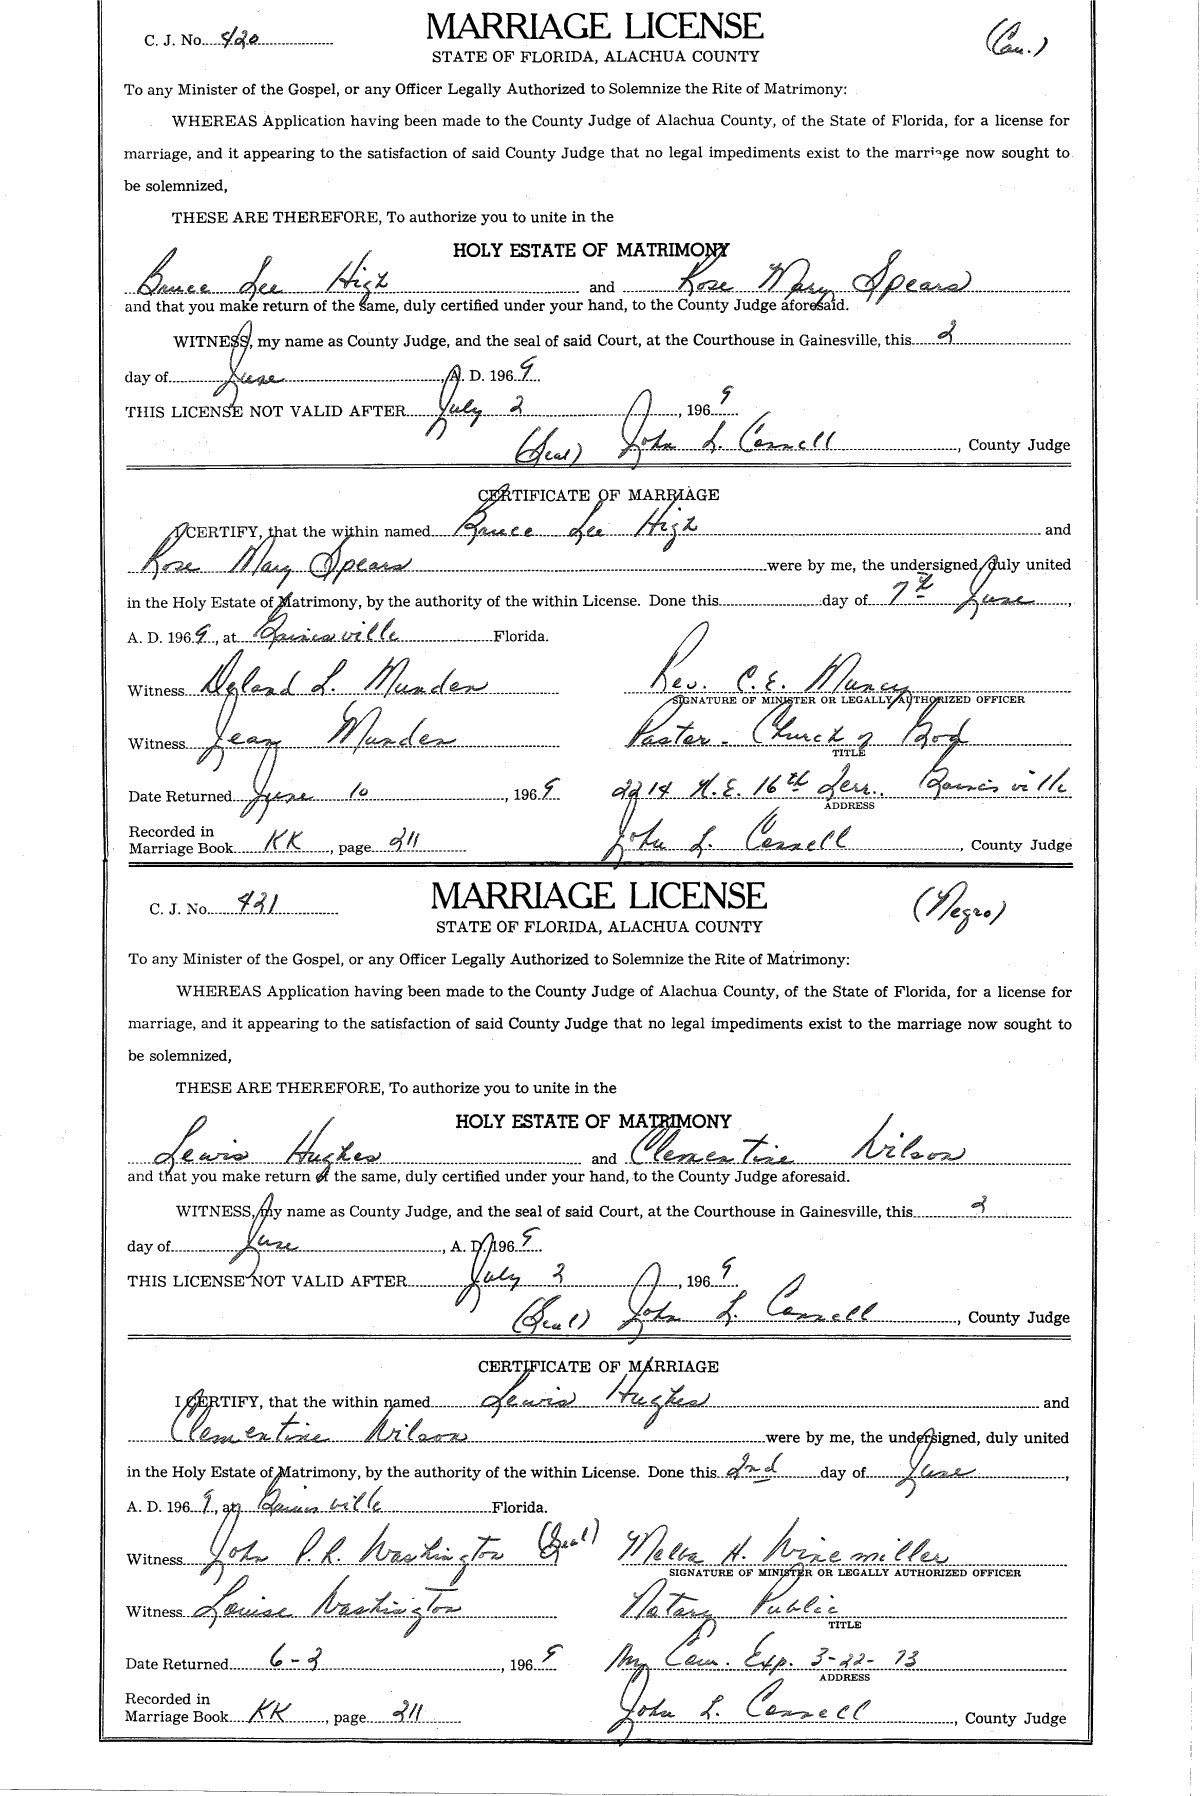 C. J. No. 420
MARRIAGE LICENSE
(Cau.)
STATE OF FLORIDA, ALACHUA COUNTY
To any Minister of the Gospel, or any Officer Legally Authorized to Solemnize the Rite of Matrimony:
WHEREAS Application having been made to the County Judge of Alachua County, of the State of Florida, for a license for
marriage, and it appearing to the satisfaction of said County Judge that no legal impediments exist to the marriage now sought to
be solemnized,
THESE ARE THEREFORE, To authorize you to unite in the
HOLY ESTATE OF MATRIMONY
Bruce Lee High and Rose Mary Spears
and that you make return of the same, duly certified under your hand, to the County Judge aforesaid.
WITNESS, my name as County Judge, and the seal of said Court, at the Courthouse in Gainesville, this 2
day of June, A. D. 1969
THIS LICENSE NOT VALID AFTER July 2, 1969
(Seal) John L. Connell, County Judge
CERTIFICATE OF MARRIAGE
I CERTIFY, that the within named Bruce Lee High and
Rose Mary Spears were by me, the undersigned, duly united
in the Holy Estate of Matrimony, by the authority of the within License. Done this day of 7th June,
A. D. 1969, at Gainesville Florida.
Witness Dyland L. Munden Rev. C. E. Muncy
SIGNATURE OF MINISTER OR LEGALLY AUTHORIZED OFFICER
Witness Jean Munden Pastor - Church of God
TITLE
Date Returned June 10, 1969 2214 N.E. 16th Terr., Gainesville
ADDRESS
Recorded in
Marriage Book KK, page 211 John L. Connell, County Judge
C. J. No. 421
MARRIAGE LICENSE
(Negro)
STATE OF FLORIDA, ALACHUA COUNTY
To any Minister of the Gospel, or any Officer Legally Authorized to Solemnize the Rite of Matrimony:
WHEREAS Application having been made to the County Judge of Alachua County, of the State of Florida, for a license for
marriage, and it appearing to the satisfaction of said County Judge that no legal impediments exist to the marriage now sought to
be solemnized,
THESE ARE THEREFORE, To authorize you to unite in the
HOLY ESTATE OF MATRIMONY
Lewis Hughes and Clementine Wilson
and that you make return of the same, duly certified under your hand, to the County Judge aforesaid.
WITNESS, my name as County Judge, and the seal of said Court, at the Courthouse in Gainesville, this 2
day of June, A. D. 1969
THIS LICENSE NOT VALID AFTER July 2, 1969
(Seal) John L. Connell, County Judge
CERTIFICATE OF MARRIAGE
I CERTIFY, that the within named Lewis Hughes and
Clementine Wilson were by me, the undersigned, duly united
in the Holy Estate of Matrimony, by the authority of the within License. Done this 2nd day of June,
A. D. 1969, at Gainesville Florida.
Witness John P. R. Washington (Seal) Melba H. Winemiller
SIGNATURE OF MINISTER OR LEGALLY AUTHORIZED OFFICER
Witness Louise Washington Notary Public
TITLE
Date Returned 6-2, 1969 My Com. Exp. 3-22-73
ADDRESS
Recorded in
Marriage Book KK, page 211 John L. Connell, County Judge